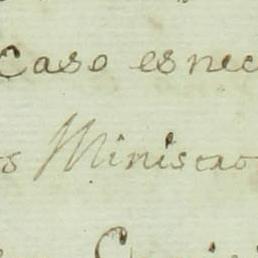 caso es nec
s Ministro